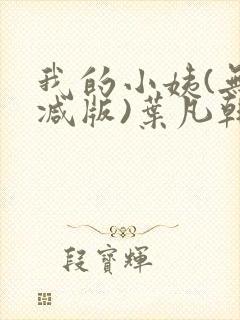 我的小姨(無
减版)葉凡韓
段寶輝